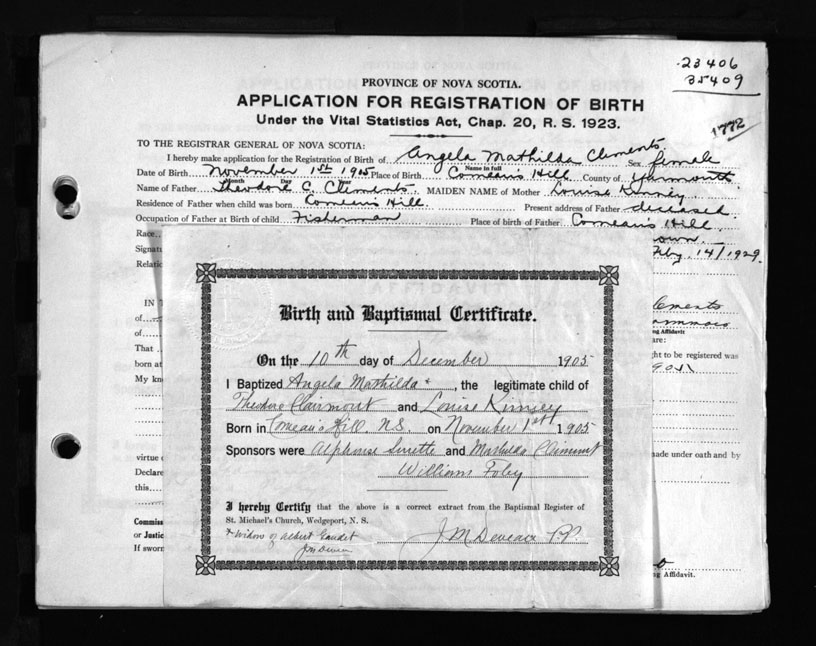 23406
35409
PROVINCE OF NOVA SCOTIA.
APPLICATION FOR REGISTRATION OF BIRTH
Under the Vital Statistics Act, Chap. 20, R. S. 1923.
1772
TO THE REGISTRAR GENERAL OF NOVA SCOTIA:
I hereby make application for the Registration of Birth of Angela Mathilda Clements Sex female
Name in full
Date of Birth November 1st 1905 Place of Birth Comeau's Hill County of Yarmouth
Month Day
Name of Father Theodore C. Clements MAIDEN NAME of Mother Louise Kinney
Residence of Father when child was born Comeau's Hill Present address of Father deceased
Occupation of Father at Birth of child Fisherman Place of birth of Father Comeau's Hill
Race
Signatu
Feby 14/1929
Relatio
IN T
of
of
Clements
ng Affidavit
are:
That
ght to be registered was
born at
My kno
Birth and Baptismal Certificate.
On the 10th day of December 1905
I Baptized Angela Mathilda*, the legitimate child of
Theodore Clairmont and Louise Kinnsey
Born in Comeau's Hill N.S. on November 1st 1905
Sponsors were Alphonse Surette and Mathilda Clairmont
William Foley
I hereby Certify that the above is a correct extract from the Baptismal Register of
St. Michael's Church, Wedgeport, N. S.
* Widow of Albert Gaudet
J M Deveau P.P.
virtue o
made under oath and by
Declare
this
Commiss
or Justic
If sworn
ng Affidavit.